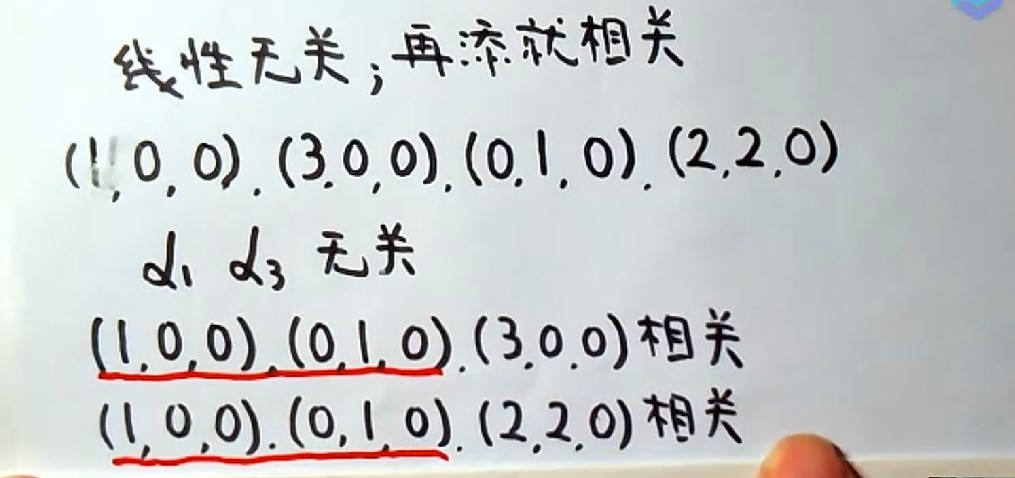 线性无关；再添就相关
(1,0,0).(3.0,0).(0.1.0).(2.2.0)
α₁ α₃ 无关
(1.0,0).(0.1.0).(3.0.0)相关
(1,0,0).(0,1,0).(2.2.0)相关